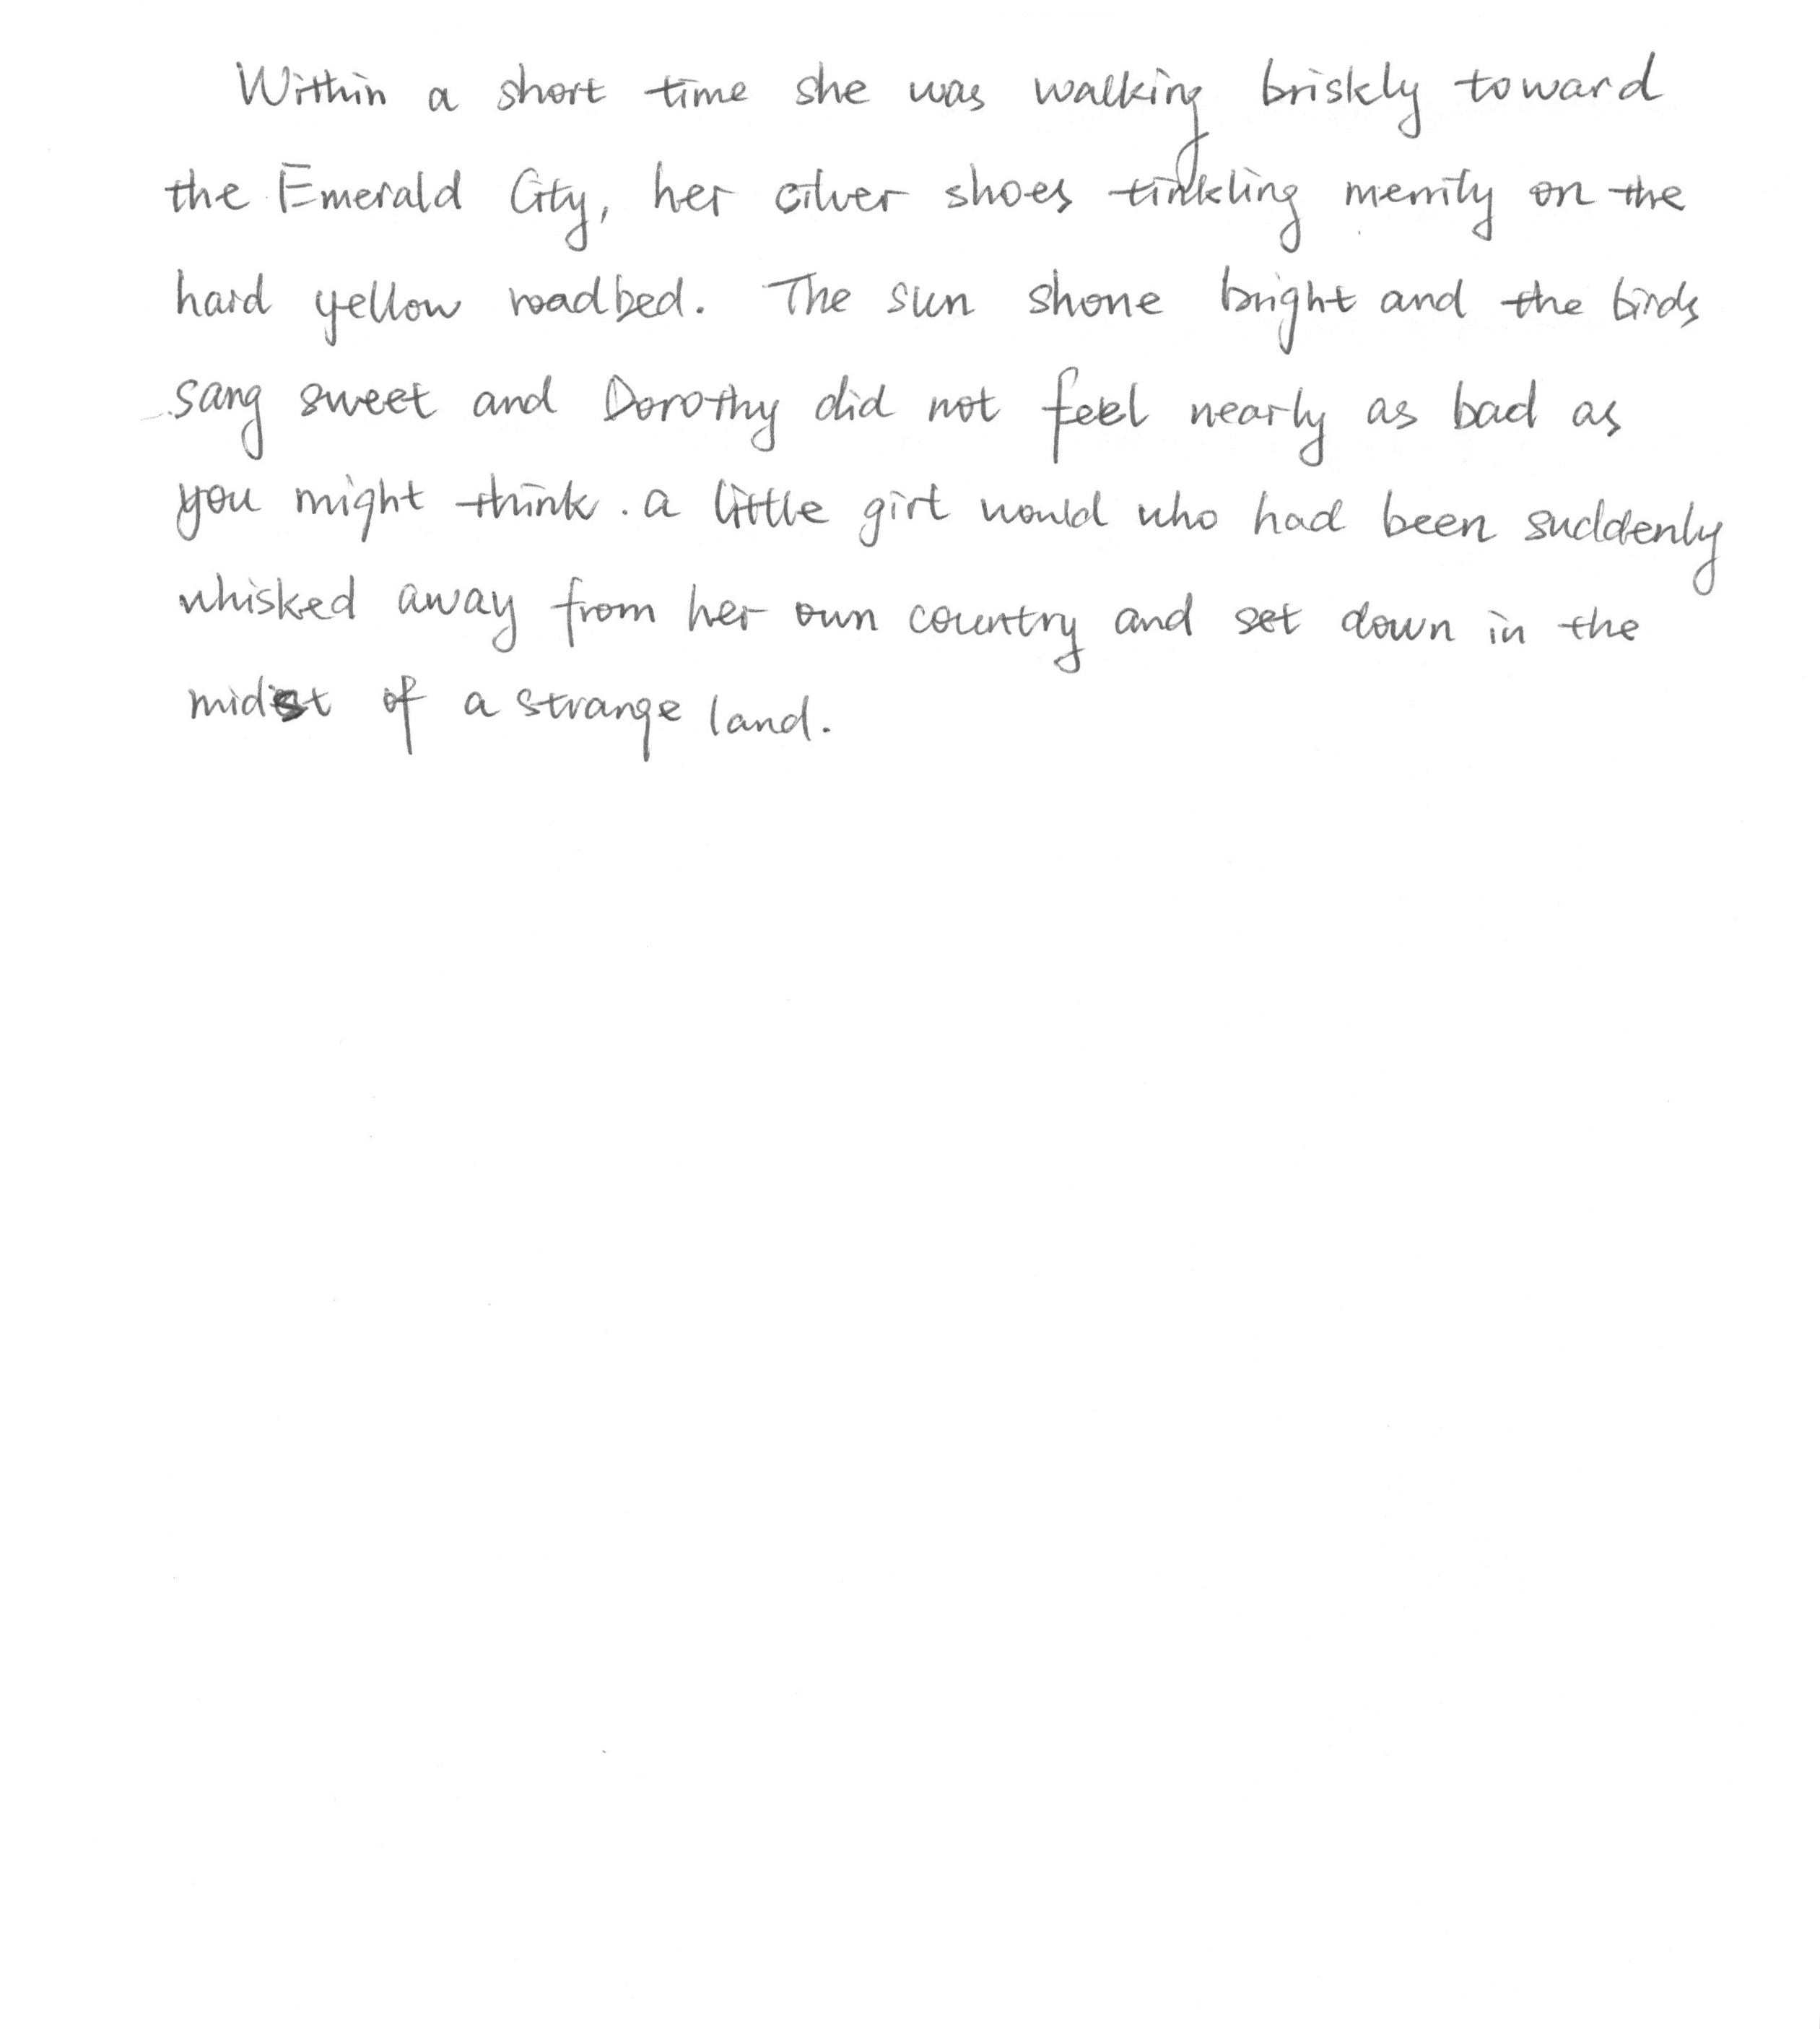 Within a short time she was walking briskly toward
the Emerald City, her silver shoes tinkling merrily on the
hard yellow roadbed. The sun shone bright and the birds
sang sweet and Dorothy did not feel nearly as bad as
you might think . a little girl would who had been suddenly
whisked away from her own country and set down in the
midst of a strange land.